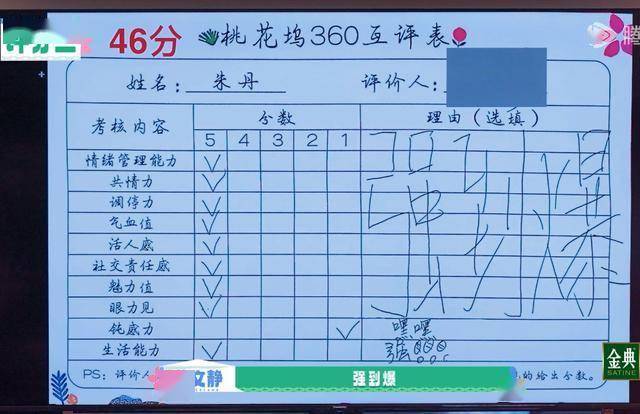 46分
桃花坞360互评表
姓名: 朱丹 评价人:
考核内容 分数 理由(选填)
5 4 3 2 1
情绪管理能力
共情力
调停力
气血值
活人感
社交责任感
魅力值
眼力见
钝感力 嘿嘿
生活能力 强
PS: 评价人 的给出分数。
文静 强到爆
金典
SATINE
腾